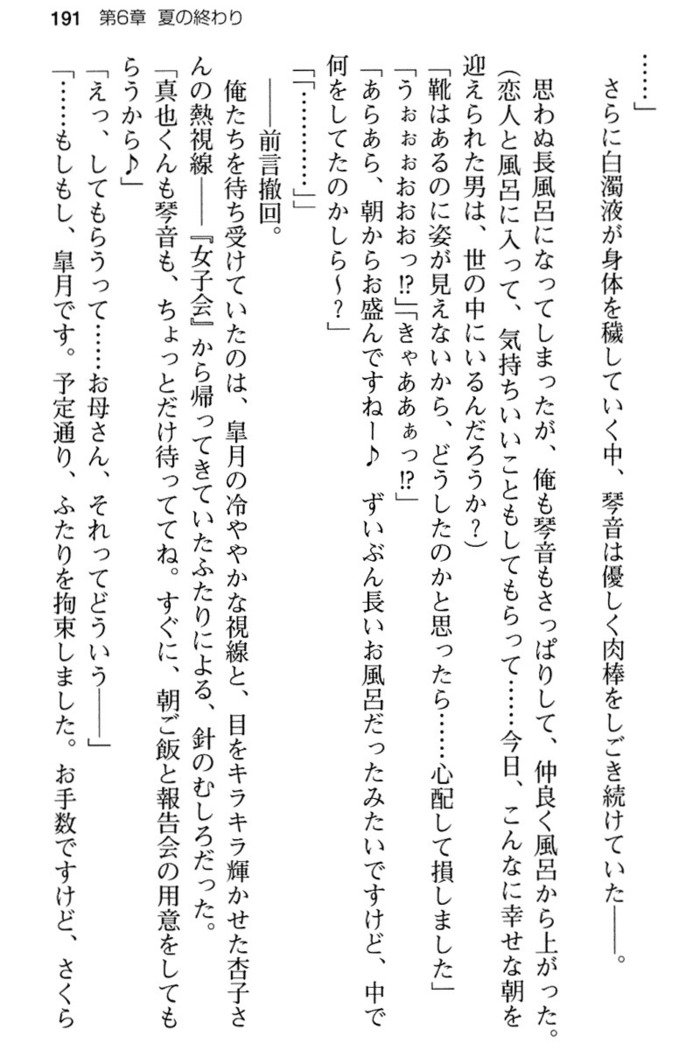 191 第6章 夏の終わり
……」
さらに白濁液が身体を穢していく中、琴音は優しく肉棒をしごき続けていた――。
思わぬ長風呂になってしまったが、俺も琴音もさっぱりして、仲良く風呂から上がった。
(恋人と風呂に入って、気持ちいいこともしてもらって……今日、こんなに幸せな朝を
迎えられた男は、世の中にいるんだろうか？)
「靴はあるのに姿が見えないから、どうしたのかと思ったら……心配して損しました」
「うぉぉぉおおおっ!?」「きゃああぁっ!?」
「あらあら、朝からお盛んですねー♪　ずいぶん長いお風呂だったみたいですけど、中で
何をしてたのかしら～？」
「「…………」」
――前言撤回。
俺たちを待ち受けていたのは、皐月の冷ややかな視線と、目をキラキラ輝かせた杏子さ
んの熱視線――『女子会』から帰ってきていたふたりによる、針のむしろだった。
「真也くんも琴音も、ちょっとだけ待っててね。すぐに、朝ご飯と報告会の用意をしても
らうから♪」
「えっ、してもらうって……お母さん、それってどういう――」
「……もしもし、皐月です。予定通り、ふたりを拘束しました。お手数ですけど、さくら